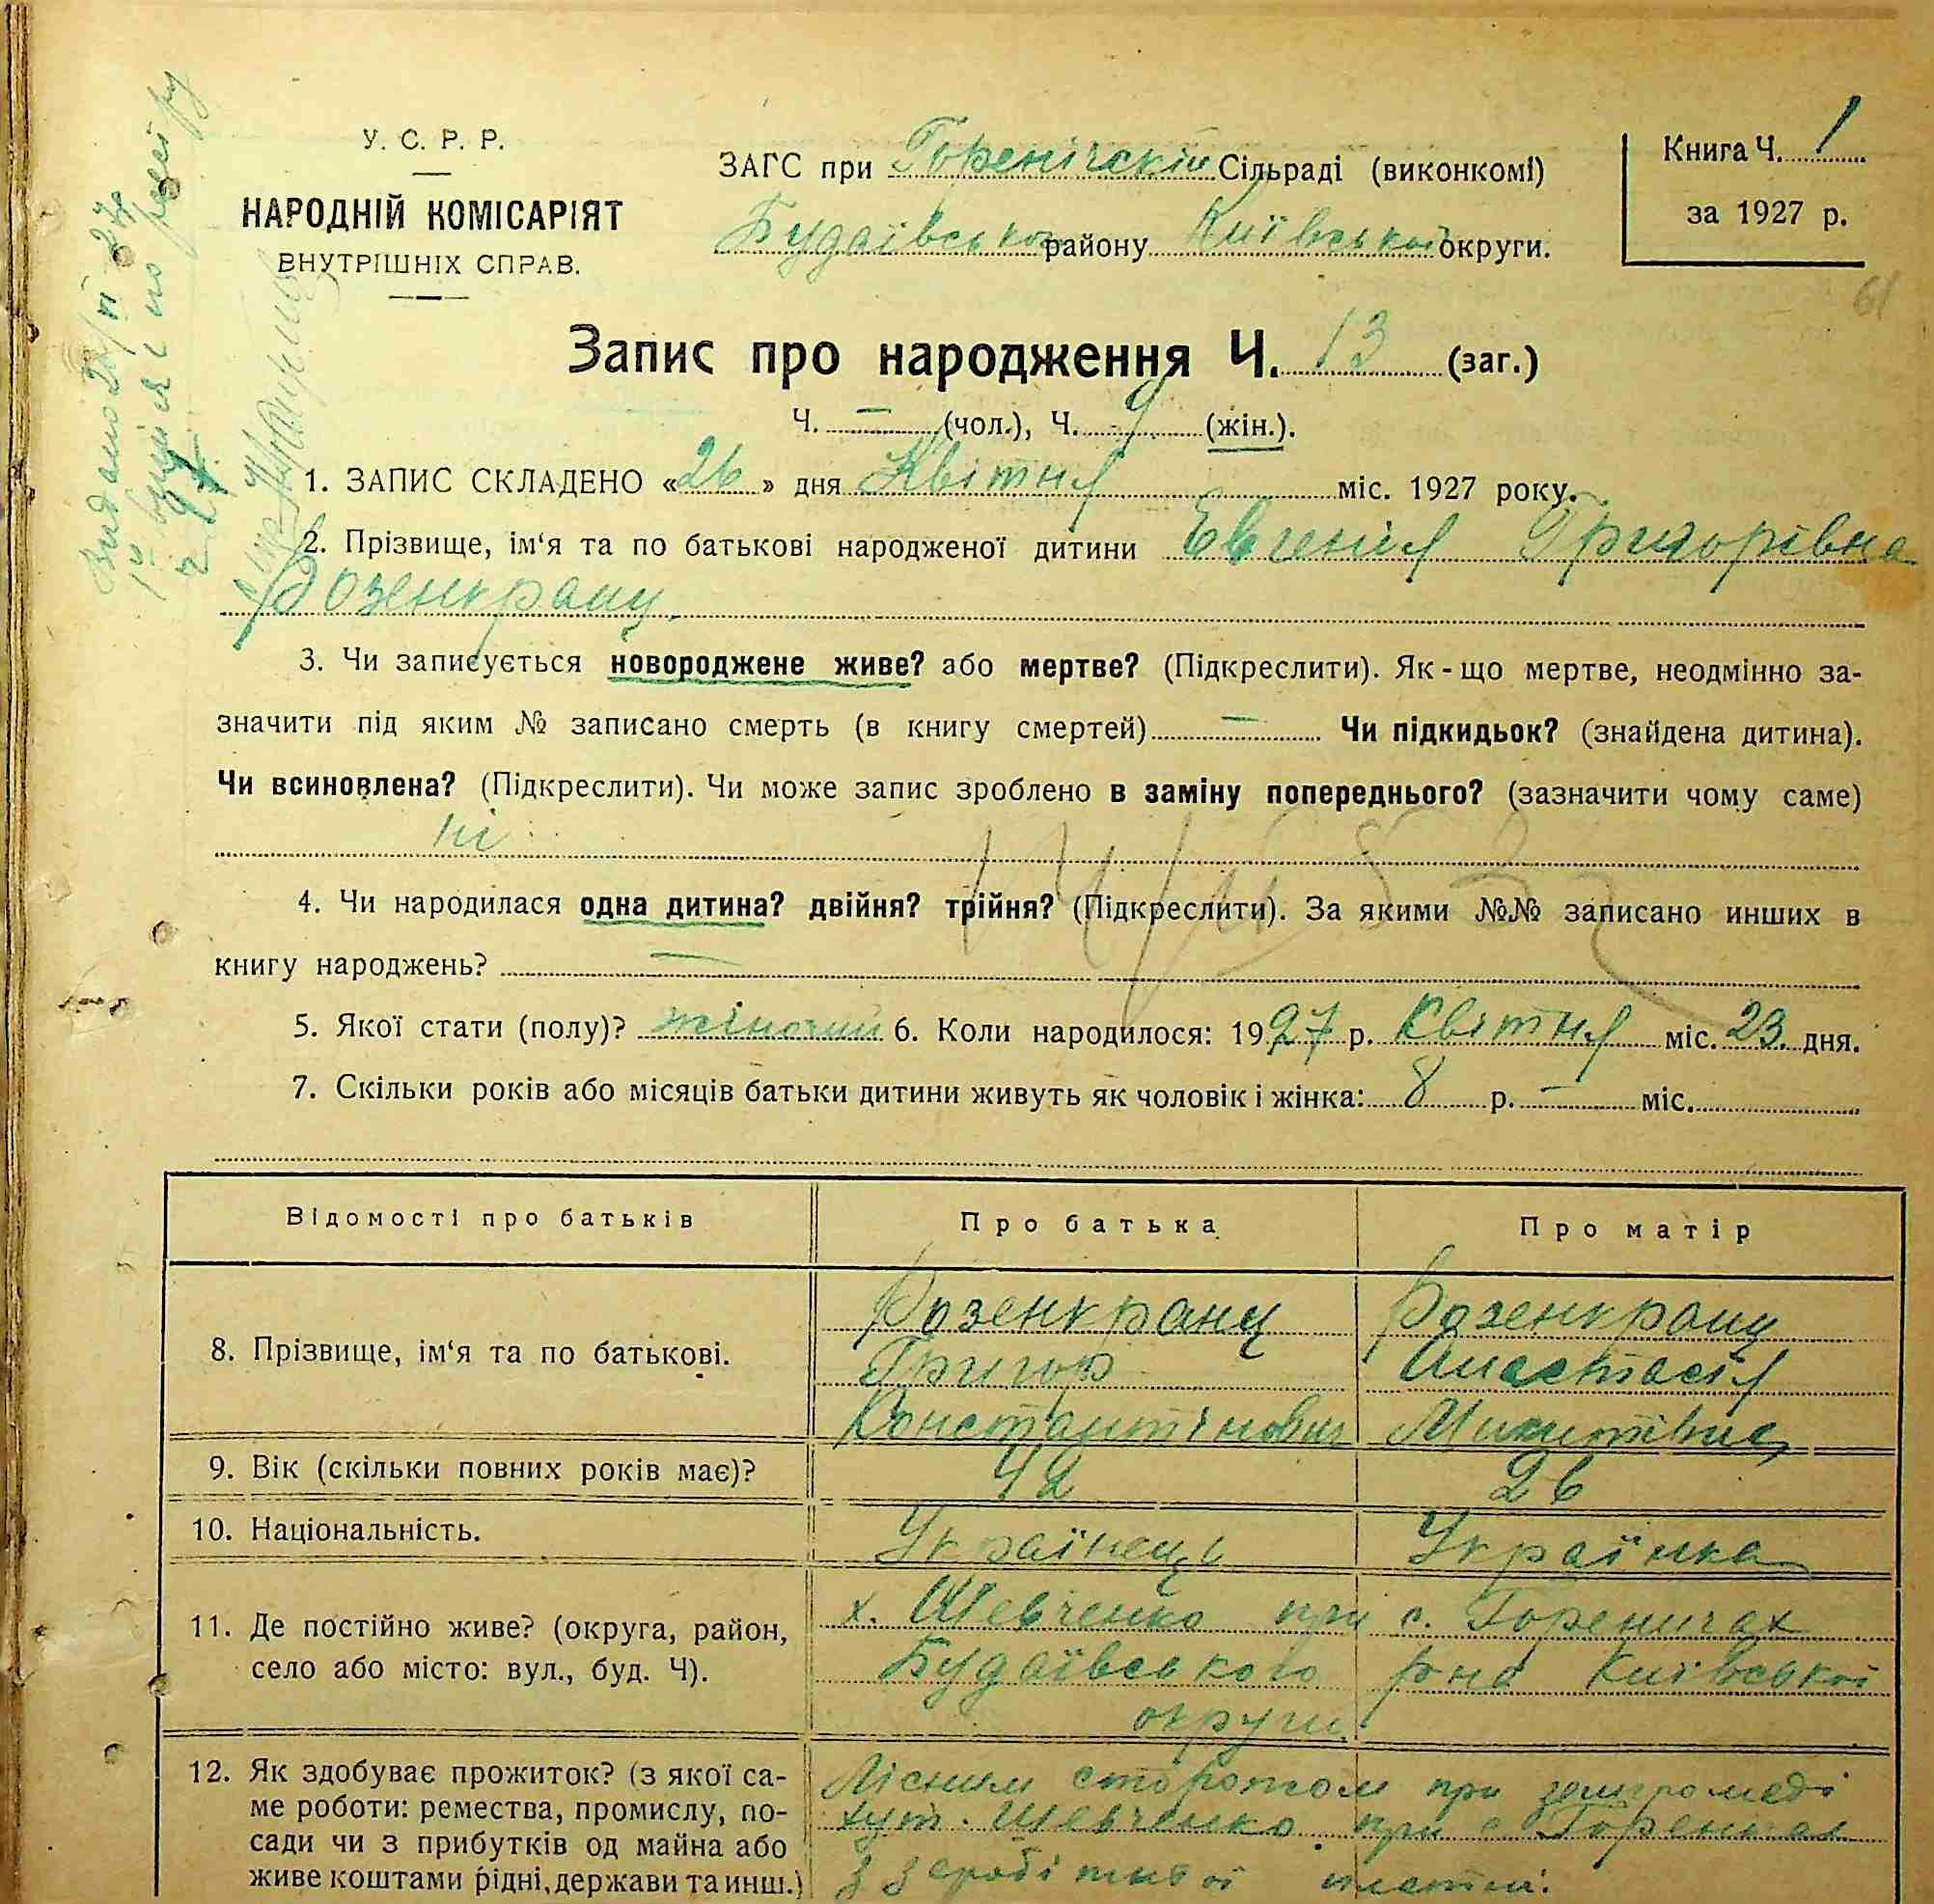 У. С. Р. Р.
НАРОДНІЙ КОМІСАРІЯТ
ВНУТРІШНІХ СПРАВ.
ЗАГС при Горенічскій Сільраді (виконкомі)
Будаївського району Київської округи.
Книга Ч. 1
за 1927 р.
61
Запис про народження Ч. 13 (заг.)
Ч. — (чол.), Ч. 9 (жін.).
1. ЗАПИС СКЛАДЕНО «26» дня Квітня міс. 1927 року.
2. Прізвище, ім‘я та по батькові народженої дитини Евгенія Григорівна
Розенкранц.
3. Чи записується новороджене живе? або мертве? (Підкреслити). Як-що мертве, неодмінно за-
значити під яким № записано смерть (в книгу смертей) — Чи підкидьок? (знайдена дитина).
Чи всиновлена? (Підкреслити). Чи може запис зроблено в заміну попереднього? (зазначити чому саме)
ні
4. Чи народилася одна дитина? двійня? трійня? (Підкреслити). За якими №№ записано инших в
книгу народжень? —
5. Якої стати (полу)? жіночий 6. Коли народилося: 1927 р. Квітня міс. 23. дня.
7. Скільки років або місяців батьки дитини живуть як чоловік і жінка: 8 р. — міс.
Відомості про батьків Про батька Про матір
8. Прізвище, ім‘я та по батькові. Розенкранц Розенкранц
Григор Анастасія
Константінович Микитівна
9. Вік (скільки повних років має)? 42 26
10. Національність. Українець Українка
11. Де постійно живе? (округа, район,
село або місто: вул., буд. Ч).
х. Шевченко при с. Гореничах
Будаївського рона Київської
округи.
12. Як здобуває прожиток? (з якої са-
ме роботи: ремества, промислу, по-
сади чи з прибутків од майна або
живе коштами рідні, держави та инш.)
Лісним сторожом при земгромаді
хут. Шевченко при с.
з платні.